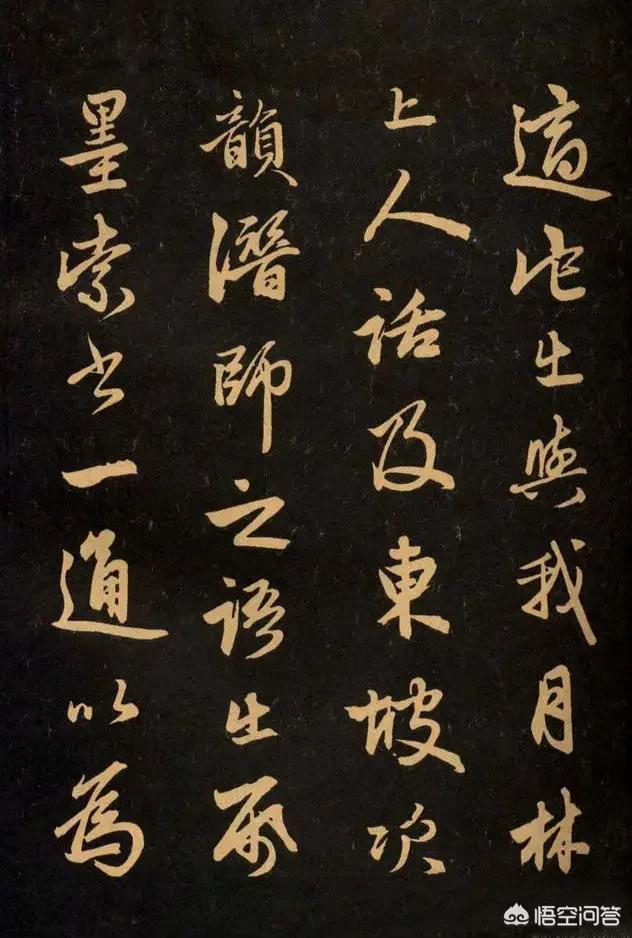 適他出與我月林
上人話及東坡次
韻潛師之語出帋
墨索書一通以為
悟空问答